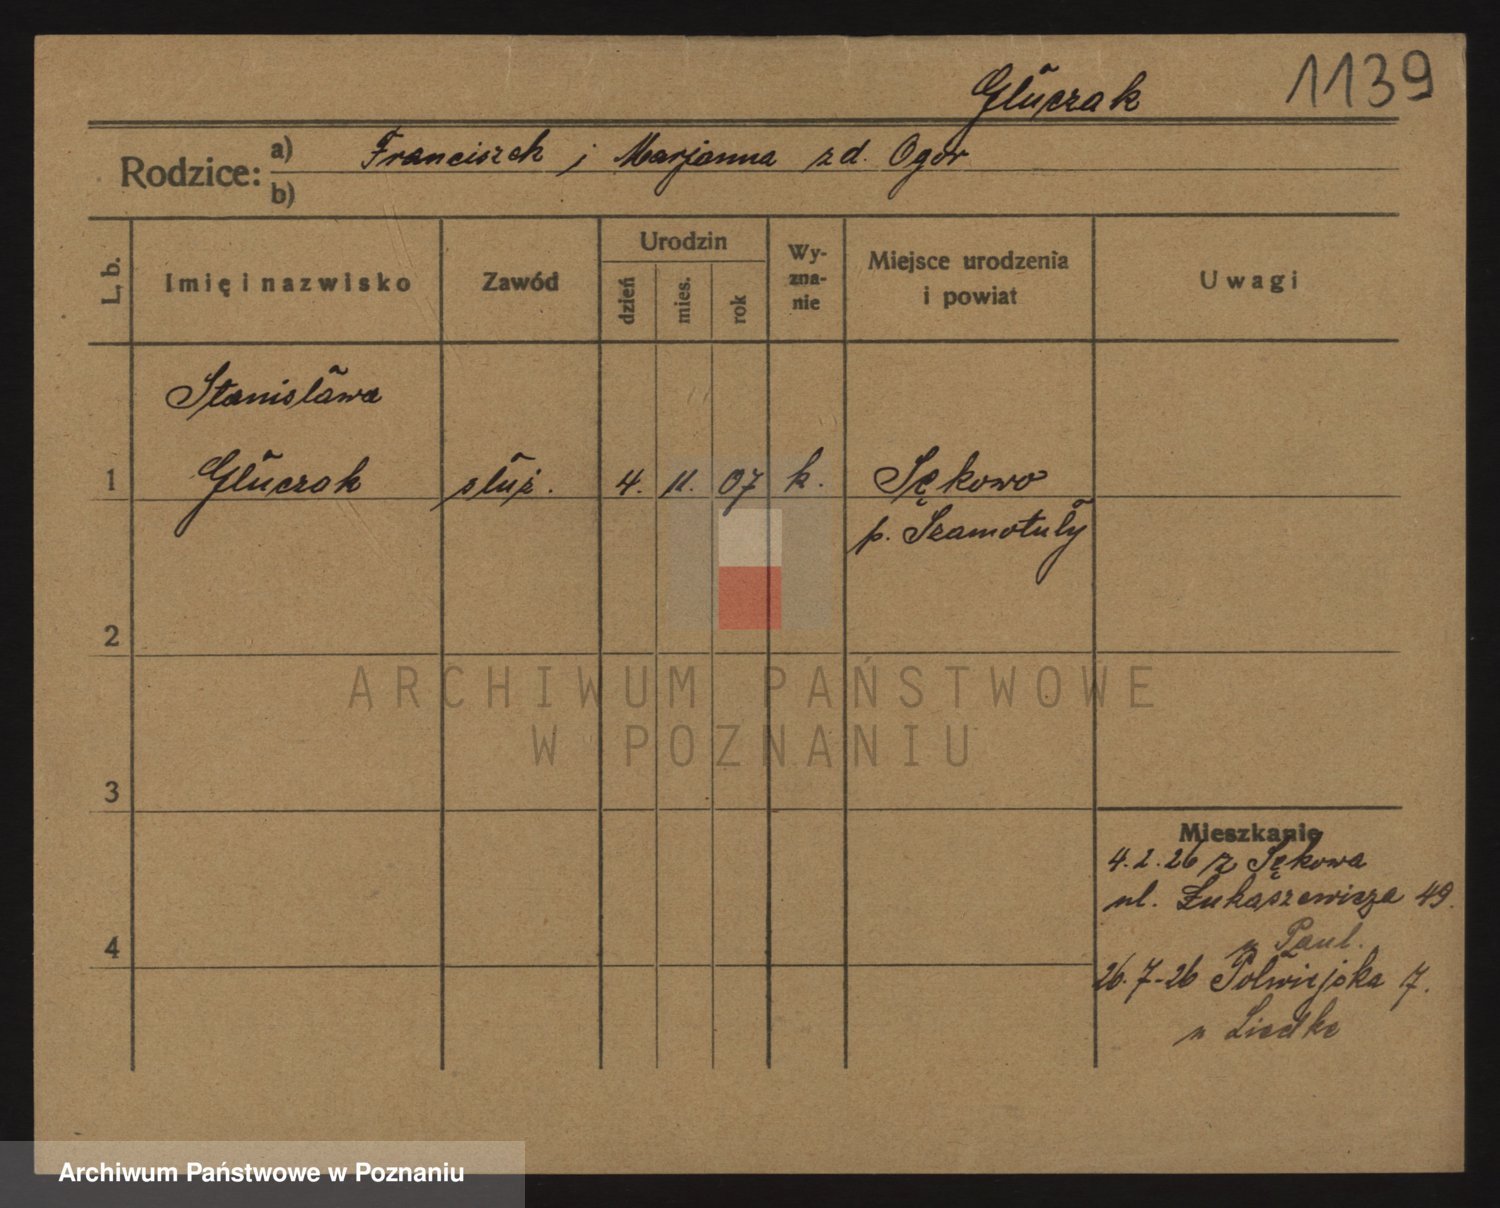 1139
Głuczak
Rodzice: a) Franciszek i Marjanna zd. Ogór
b)
L. b.
Imię i nazwisko
Zawód
Urodzin
dzień
mies.
rok
Wy-
zna-
nie
Miejsce urodzenia
i powiat
Uwagi
Stanisława
1 Głuczak służ. 4. 11. 07 k. Sękowo
p. Szamotuły
2
3
4
Mieszkanie
4.2.26 z Sękowa
ul. Łukaszewicza 49.
u Paul.
26.7-26 Półwiejska 7.
u Liedke
ARCHIWUM PAŃSTWOWE
W POZNANIU
Archiwum Państwowe w Poznaniu